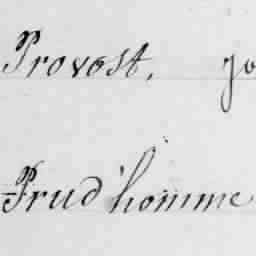 Provost, Jo
Prud'homme